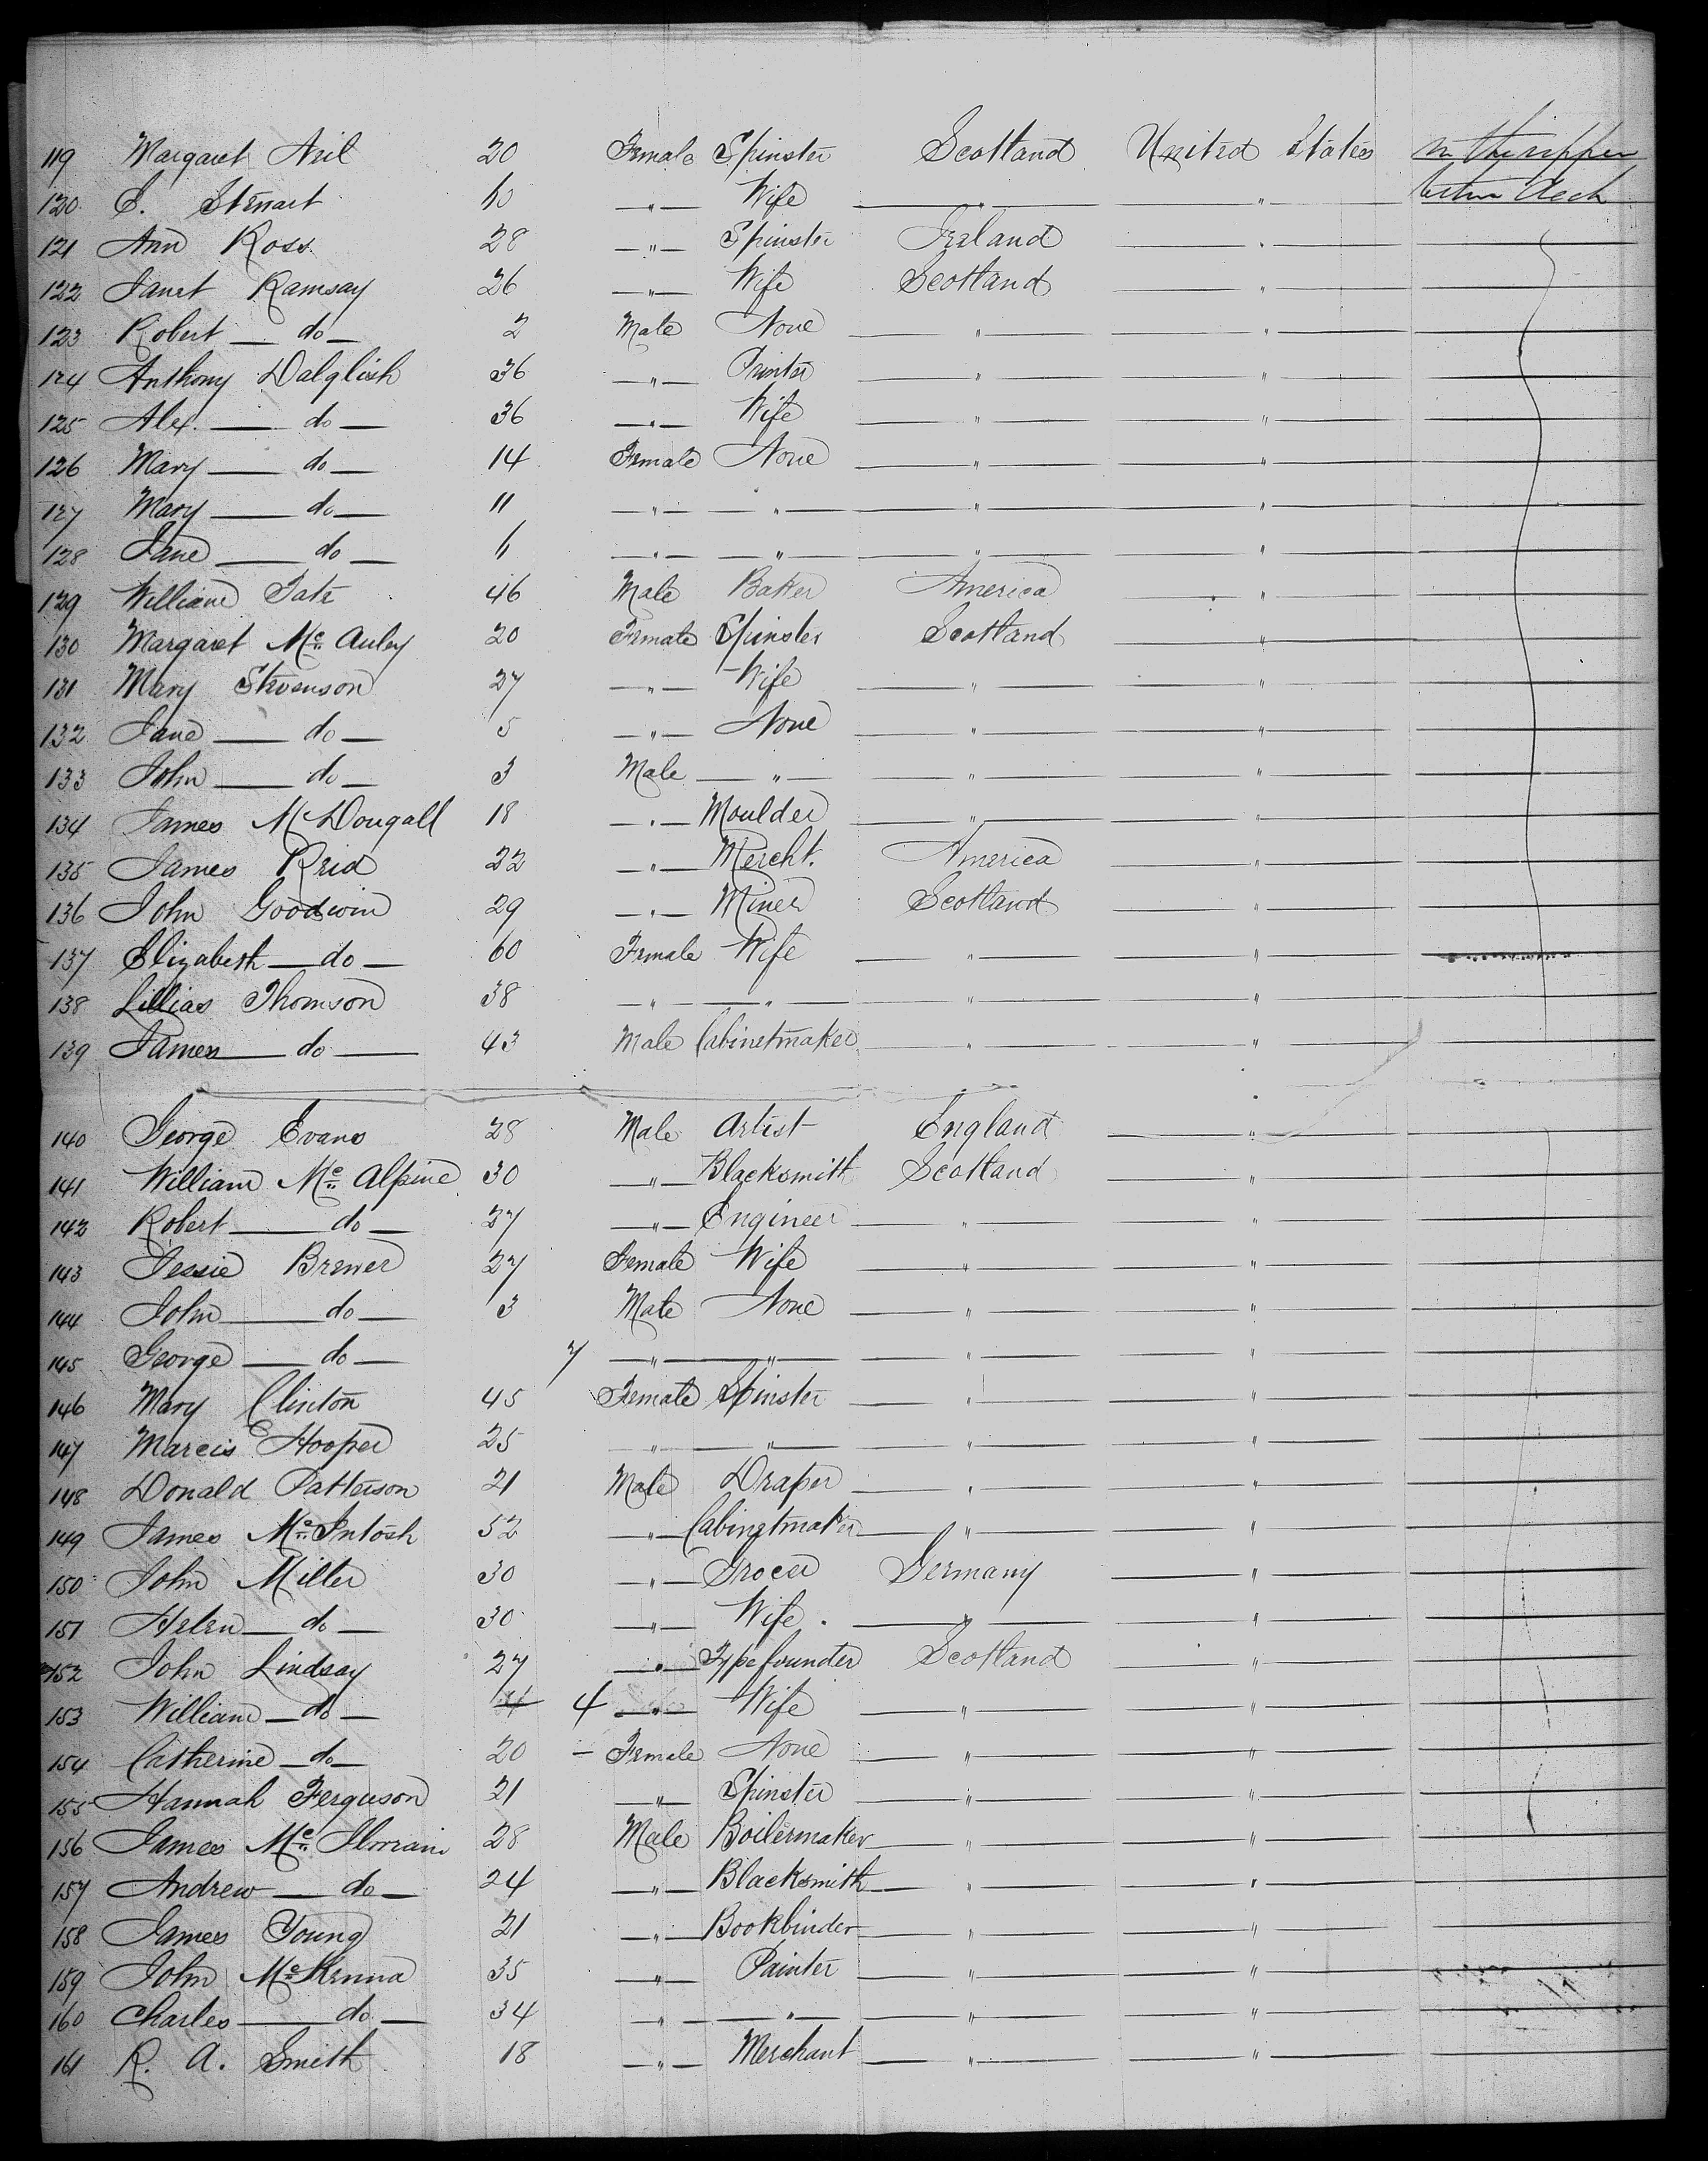 119 Margaret Neil 20 Female Spinster Scotland United States In the upper
120 C. Stewart 60 —"— Wife —"— —"— between deck
121 Ann Ross 28 —"— Spinster Ireland —"—
122 Janet Ramsay 26 —"— Wife Scotland —"—
123 Robert — do — 2 Male None —"— —"—
124 Anthony Dalglish 36 —"— Printer —"— —"—
125 Alex. — do — 36 —"— Wife —"— —"—
126 Mary — do — 14 Female None —"— —"—
127 Mary — do — 11 —"— —"— —"— —"—
128 Jane — do — 6 —"— —"— —"— —"—
129 William Tate 46 Male Baker America —"—
130 Margaret Mc Auley 20 Female Spinster Scotland —"—
131 Mary Stevenson 27 —"— Wife —"— —"—
132 Jane — do — 5 —"— None —"— —"—
133 John — do — 3 Male —"— —"— —"—
134 James McDougall 18 —"— Moulder —"— —"—
135 James Reid 22 —"— Mercht. America —"—
136 John Goodwin 29 —"— Miner Scotland —"—
137 Elizabeth — do — 60 Female Wife —"— —"—
138 Lillias Thomson 38 —"— —"— —"— —"—
139 James — do — 43 Male Cabinetmaker —"— —"—
140 George Evans 28 Male Artist England —"—
141 William Mc Alpine 30 —"— Blacksmith Scotland —"—
142 Robert — do — 27 —"— Engineer —"— —"—
143 Jessie Brewer 27 Female Wife —"— —"—
144 John — do — 3 Male None —"— —"—
145 George — do — 7 —"— —"— —"— —"—
146 Mary Clinton 45 Female Spinster —"— —"—
147 Marcis Hooper 25 —"— —"— —"— —"—
148 Donald Patterson 21 Male Draper —"— —"—
149 James McIntosh 52 —"— Cabinetmaker —"— —"—
150 John Miller 30 —"— Grocer Germany —"—
151 Helen — do — 30 —"— Wife —"— —"—
152 John Lindsay 27 —"— Typefounder Scotland —"—
153 William — do — 4 4 —"— Wife —"— —"—
154 Catherine — do — 20 – Female None —"— —"—
155 Hannah Ferguson 21 —"— Spinster —"— —"—
156 James Mc 28 Male Boilermaker —"— —"—
157 Andrew — do — 24 —"— Blacksmith —"— —"—
158 James Young 21 —"— Bookbinder —"— —"—
159 John McKenna 35 —"— Painter —"— —"—
160 Charles — do — 34 —"— —"— —"— —"—
161 R. A. Smith 18 —"— Merchant —"— —"—